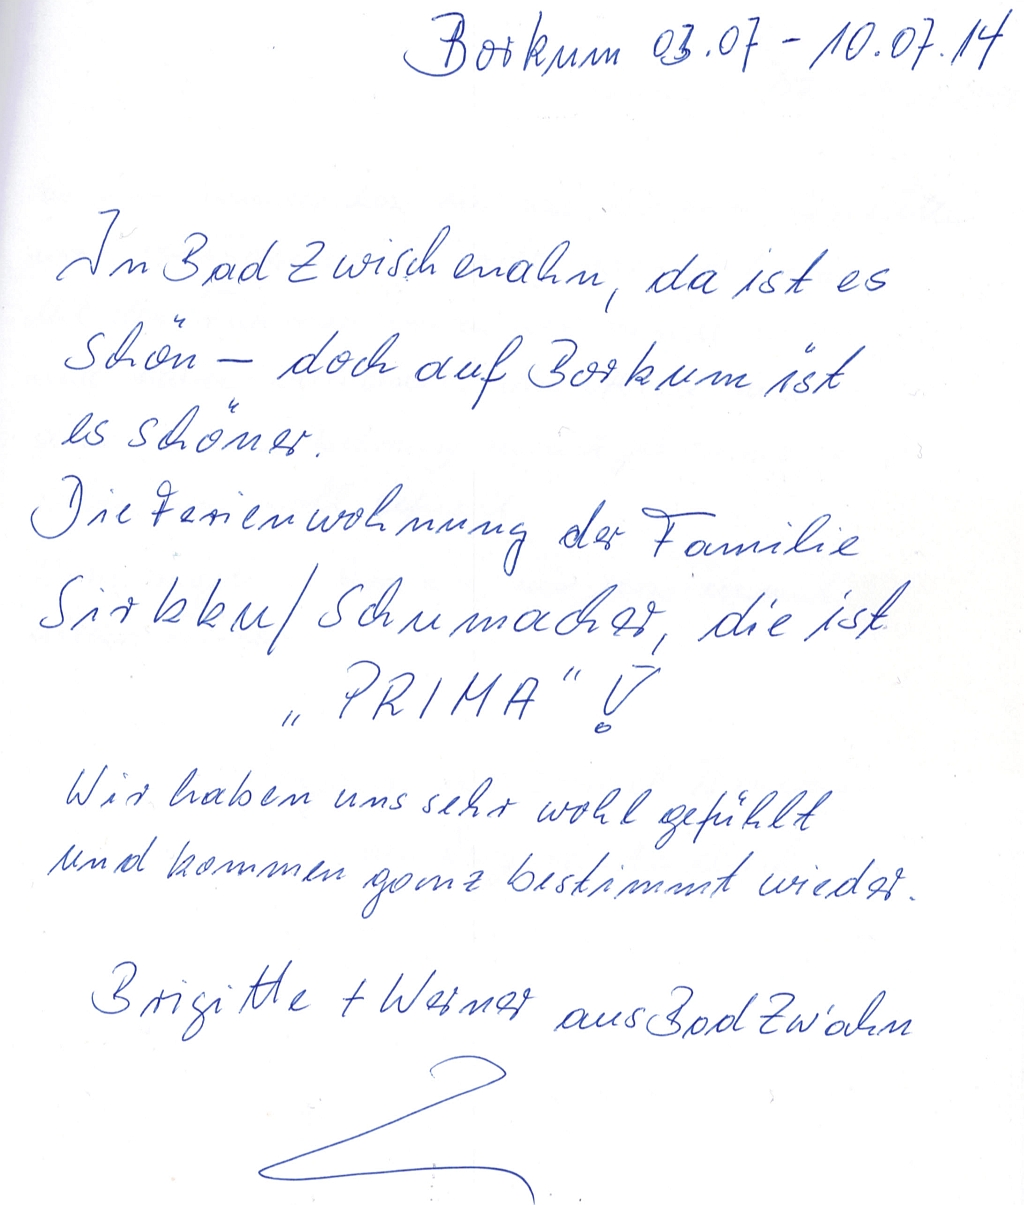 Borkum 03.07 - 10.07.14
In Bad Zwischenahn, da ist es
schön – doch auf Borkum ist
es schöner.
Die Ferienwohnung der Familie
Sirkku/Schumacher, die ist
„PRIMA“!
Wir haben uns sehr wohl gefühlt
und kommen ganz bestimmt wieder.
Brigitte + Werner aus Bad Zw'ahn